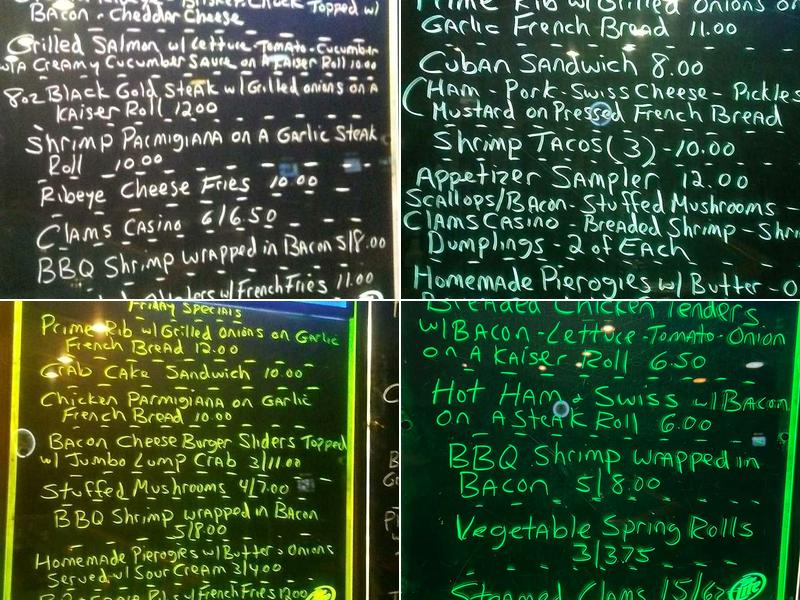 Topped w/
Bacon - Cheddar Cheese
Grilled Salmon w/ Lettuce - Tomato - Cucumber
w/A Creamy Cucumber Sauce on A Kaiser Roll 10.00
8oz Black Gold Steak w/ Grilled onions on A
Kaiser Roll 12.00
Shrimp Parmigiana on A Garlic Steak
Roll 10.00
Ribeye Cheese Fries 10.00
Clams Casino 6/6.50
BBQ Shrimp wrapped in Bacon 5/8.00
w/ French Fries 11.00
Prime Rib w/ Grilled Onions on
Garlic French Bread 11.00
Cuban Sandwich 8.00
(Ham - Pork - Swiss Cheese - Pickles
Mustard on Pressed French Bread
Shrimp Tacos (3) - 10.00
Appetizer Sampler 12.00
Scallops/Bacon - Stuffed Mushrooms -
Clams Casino - Breaded Shrimp - Shri
Dumplings - 2 of Each
Homemade Pierogies w/ Butter - O
Friday Specials
Prime Rib w/ Grilled Onions on Garlic
French Bread 12.00
Crab Cake Sandwich 10.00
Chicken Parmigiana on Garlic
French Bread 10.00
Bacon Cheese Burger Sliders Topped
w/ Jumbo Lump Crab 3/11.00
Stuffed Mushrooms 4/7.00
BBQ Shrimp wrapped in Bacon
5/8.00
Homemade Pierogies w/ Butter - Onions
Served w/ Sour Cream 3/4.00
w/ French Fries 12.00
Breaded Chicken Tenders
w/ Bacon - Lettuce - Tomato - Onion
on A Kaiser Roll 6.50
Hot Ham & Swiss w/ Bacon
on A Steak Roll 6.00
BBQ Shrimp wrapped in
Bacon 5/8.00
Vegetable Spring Rolls
3/3.75
Steamed Clams 15/6.2
Lite